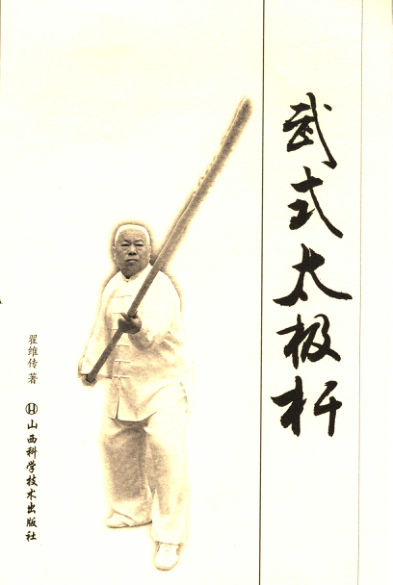 武式太极杆
翟维传 著
山西科学技术出版社